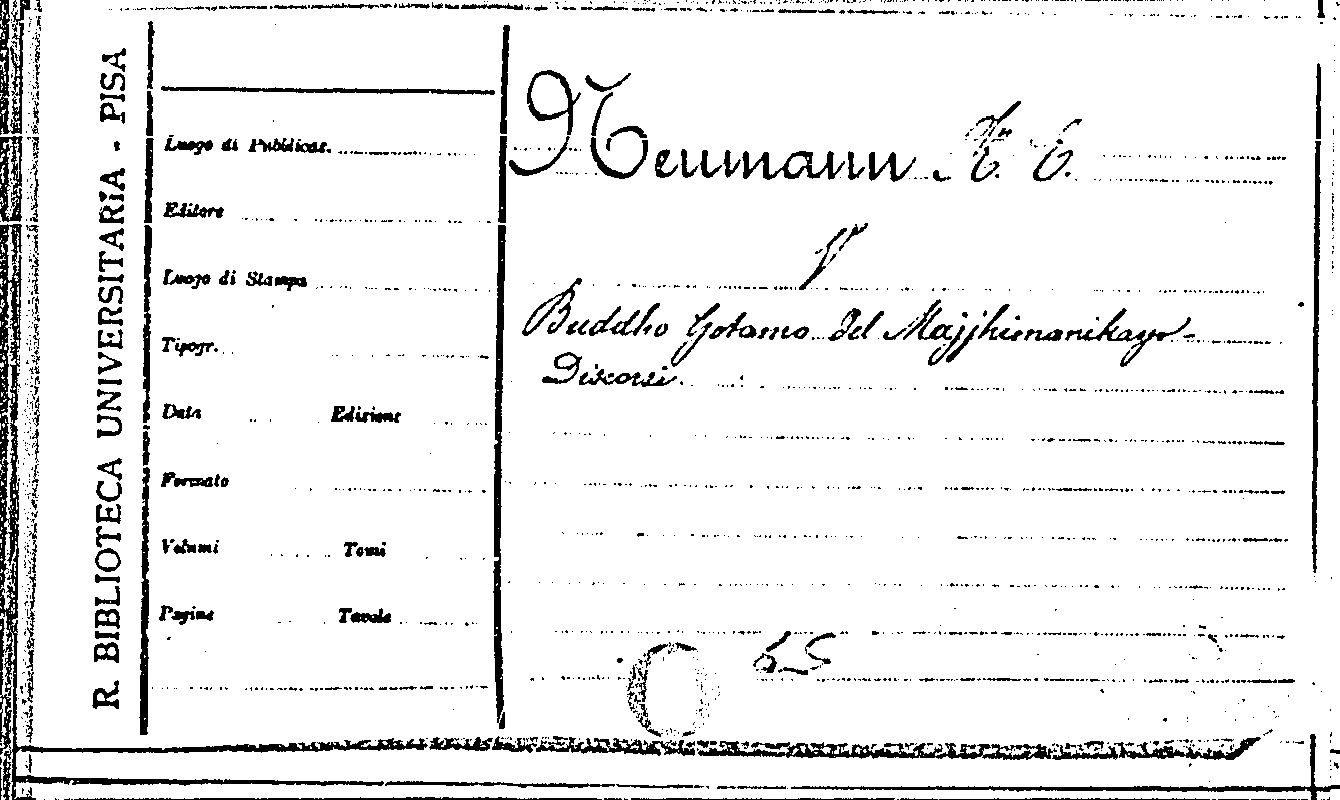 R. BIBLIOTECA UNIVERSITARIA - PISA
Luogo di Pubblicaz.
Editore
Luogo di Stampa
Tipogr.
Data Edizione
Formato
Volumi Tomi
Pagine Tavole
Neumann K. E.
V
Buddho Gotamo del Majjhimanikayo-
Discorsi.